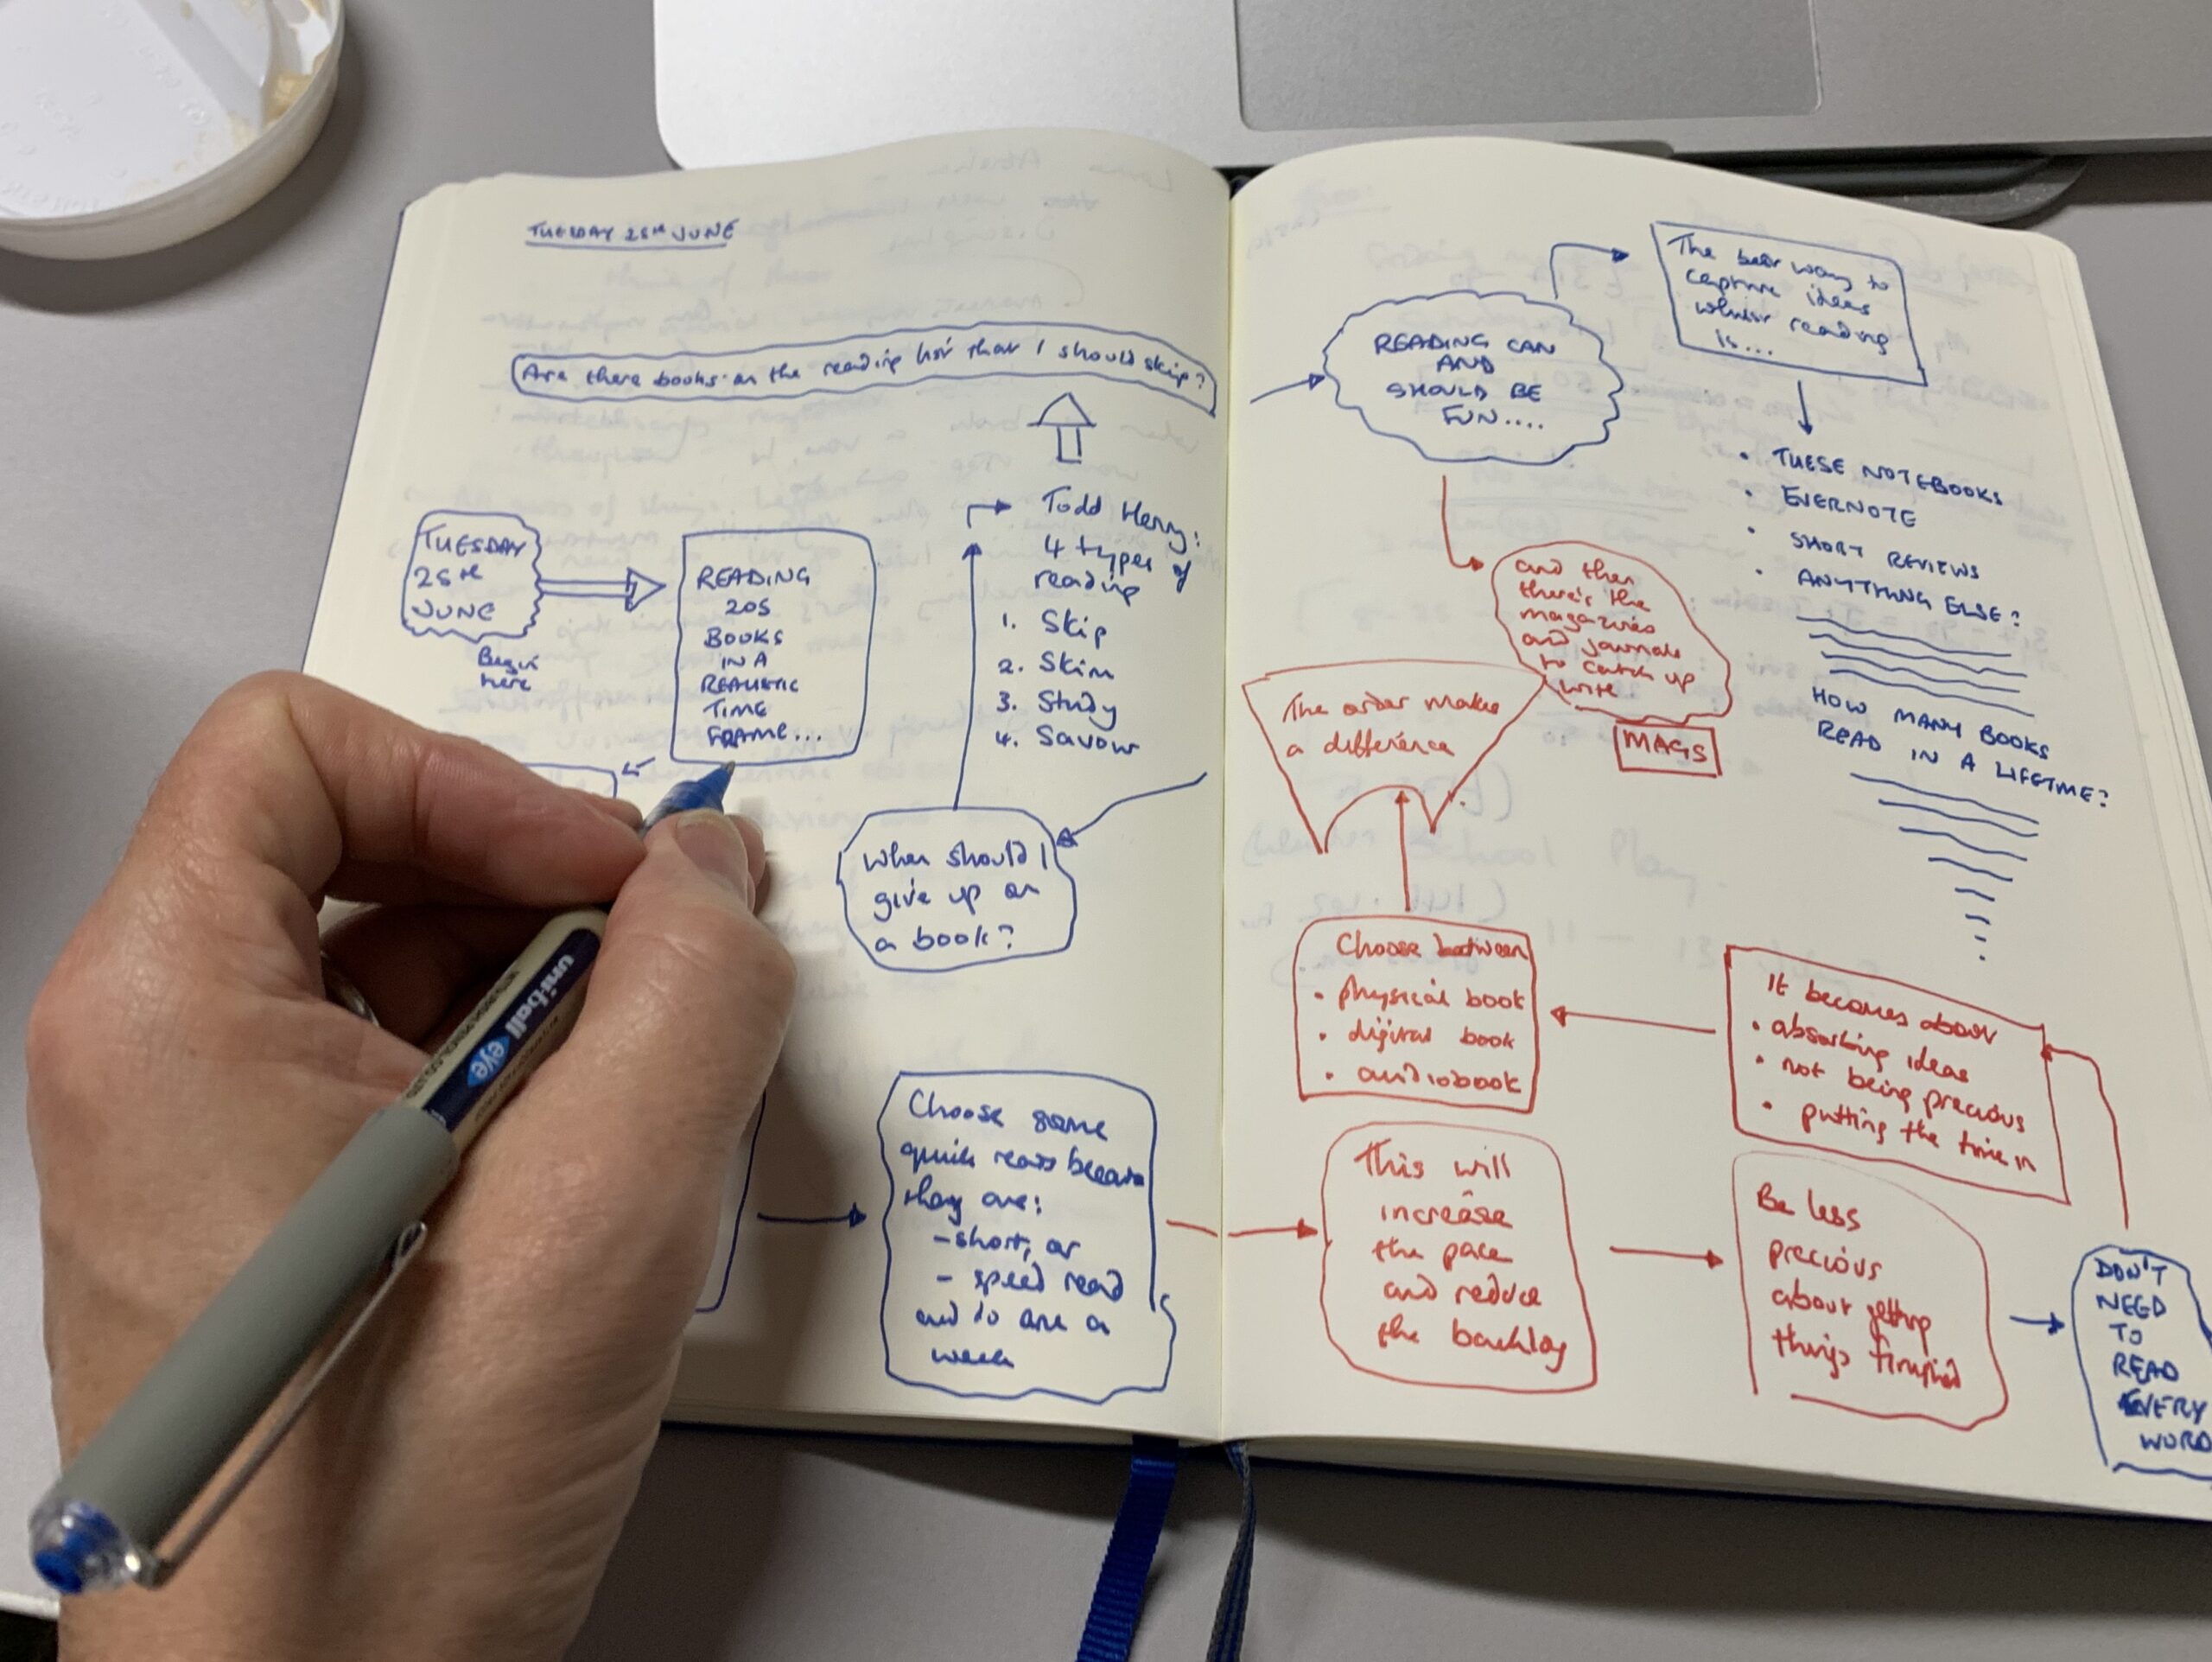 TUESDAY 25TH JUNE
Are there books on the reading list that I should skip?
TUESDAY
25TH
JUNE
Begin
here
READING
205
BOOKS
IN A
REALISTIC
TIME
FRAME...
Todd Henry:
4 types of
reading
1. Skip
2. Skim
3. Study
4. Savour
When should I
give up on
a book?
Choose some
quick reads because
they are:
- short, or
- speed read
and do one a
week
uni-ball eye
READING CAN
AND
SHOULD BE
FUN....
The best way to
capture ideas
whilst reading
is...
• THESE NOTEBOOKS
• EVERNOTE
• SHORT REVIEWS
• ANYTHING ELSE?
HOW MANY BOOKS
READ IN A LIFETIME?
and then
there's the
magazines
and journals
to catch up
with
MAGS
The order makes
a difference
Choose between
• physical book
• digital book
• audiobook
It becomes about
• absorbing ideas
• not being precious
• putting the time in
This will
increase
the pace
and reduce
the backlog
Be less
precious
about getting
things finished
DON'T
NEED
TO
READ
EVERY
WORD